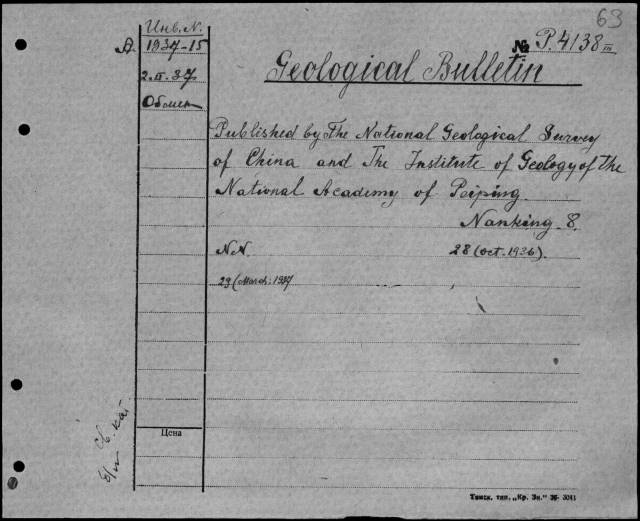 63
Инв. N.
А. 1937-15
2.II.37
Обмен
№ P.4138 III
Geological Bulletin
Published by The National Geological Survey
of China and The Institute of Geology of the
National Academy of Peiping.
Nanking. 8.
NN. 28 (Oct. 1936).
29 (March: 1937
Св. кат.
Цена
Томск. тип. „Кр. Зн." 36 3041